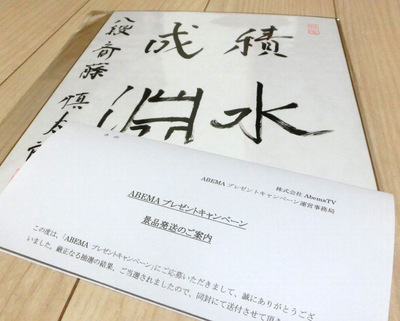 積水
成淵
八段 斎藤慎太郎
株式会社 AbemaTV
ABEMA プレゼントキャンペーン運営事務局
ABEMA プレゼントキャンペーン
景品発送のご案内
この度は、「ABEMA プレゼントキャンペーン」にご応募いただきまして、誠にありがとうござ
いました。厳正なる抽選の結果、ご当選されましたので、同封にて送付させて頂